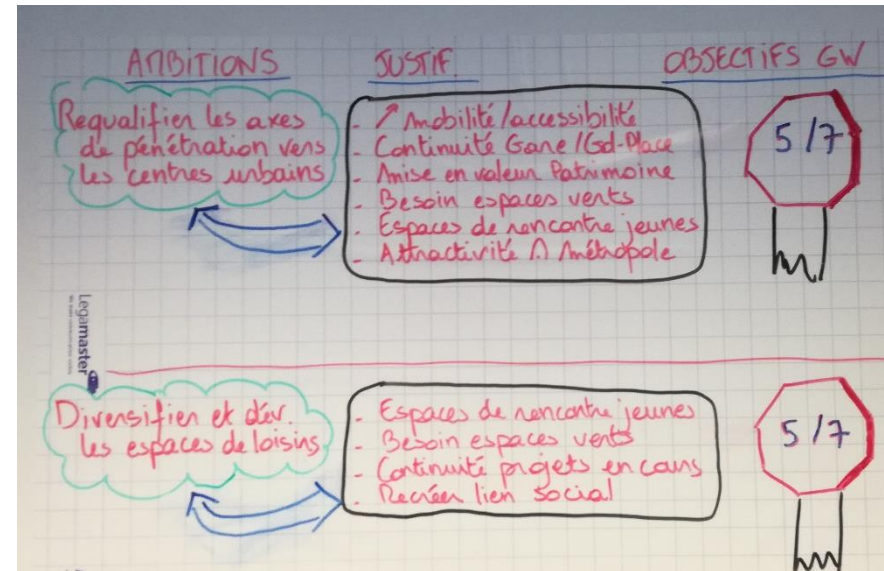 AMBITIONS
JUSTIF.
OBJECTIFS GW
Requalifier les axes
de pénétration vers
les centres urbains
- ↗ mobilité/accessibilité
- Continuité Gare/Gd-Place
- Amise en valeur Patrimoine
- Besoin espaces verts
- Espaces de rencontre jeunes
- Attractivité ∩ Métropole
5/7
Legamaster
Diversifier et dév.
les espaces de loisirs
- Espaces de rencontre jeunes
- Besoin espaces verts
- Continuité projets en cours
- Recréer lien social
5/7